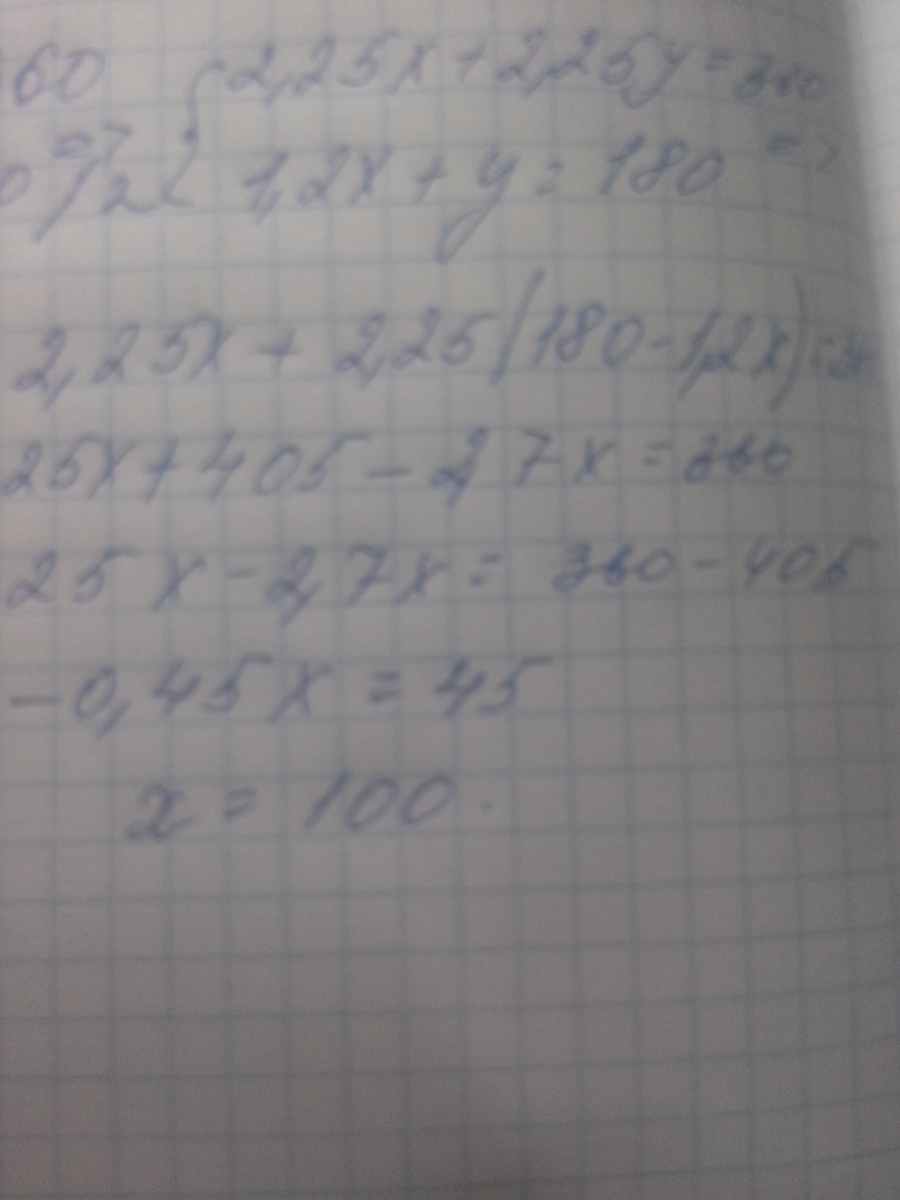 60 {2,25x+2,25y=360
0 =>/2 1,2x+y=180 =>
2,25x+2,25(180-1,2x)=3
25x+405-2,7x=360
25x-2,7x=360-405
-0,45x=45
x=100.